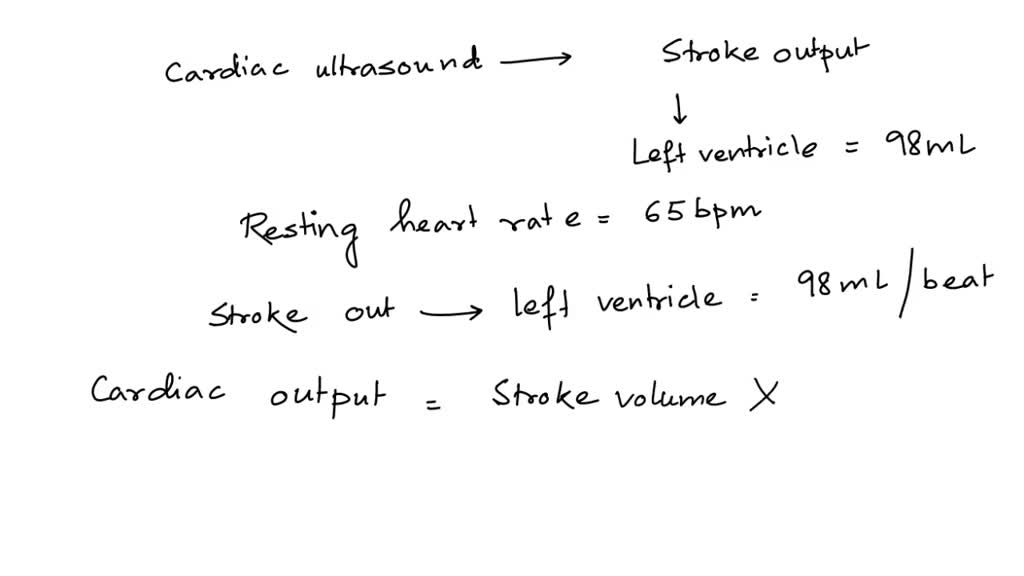 Cardiac ultrasound → Stroke output
↓
Left ventricle = 98mL
Resting heart rate = 65 bpm
Stroke out → left ventricle = 98mL/beat
Cardiac output = Stroke volume X